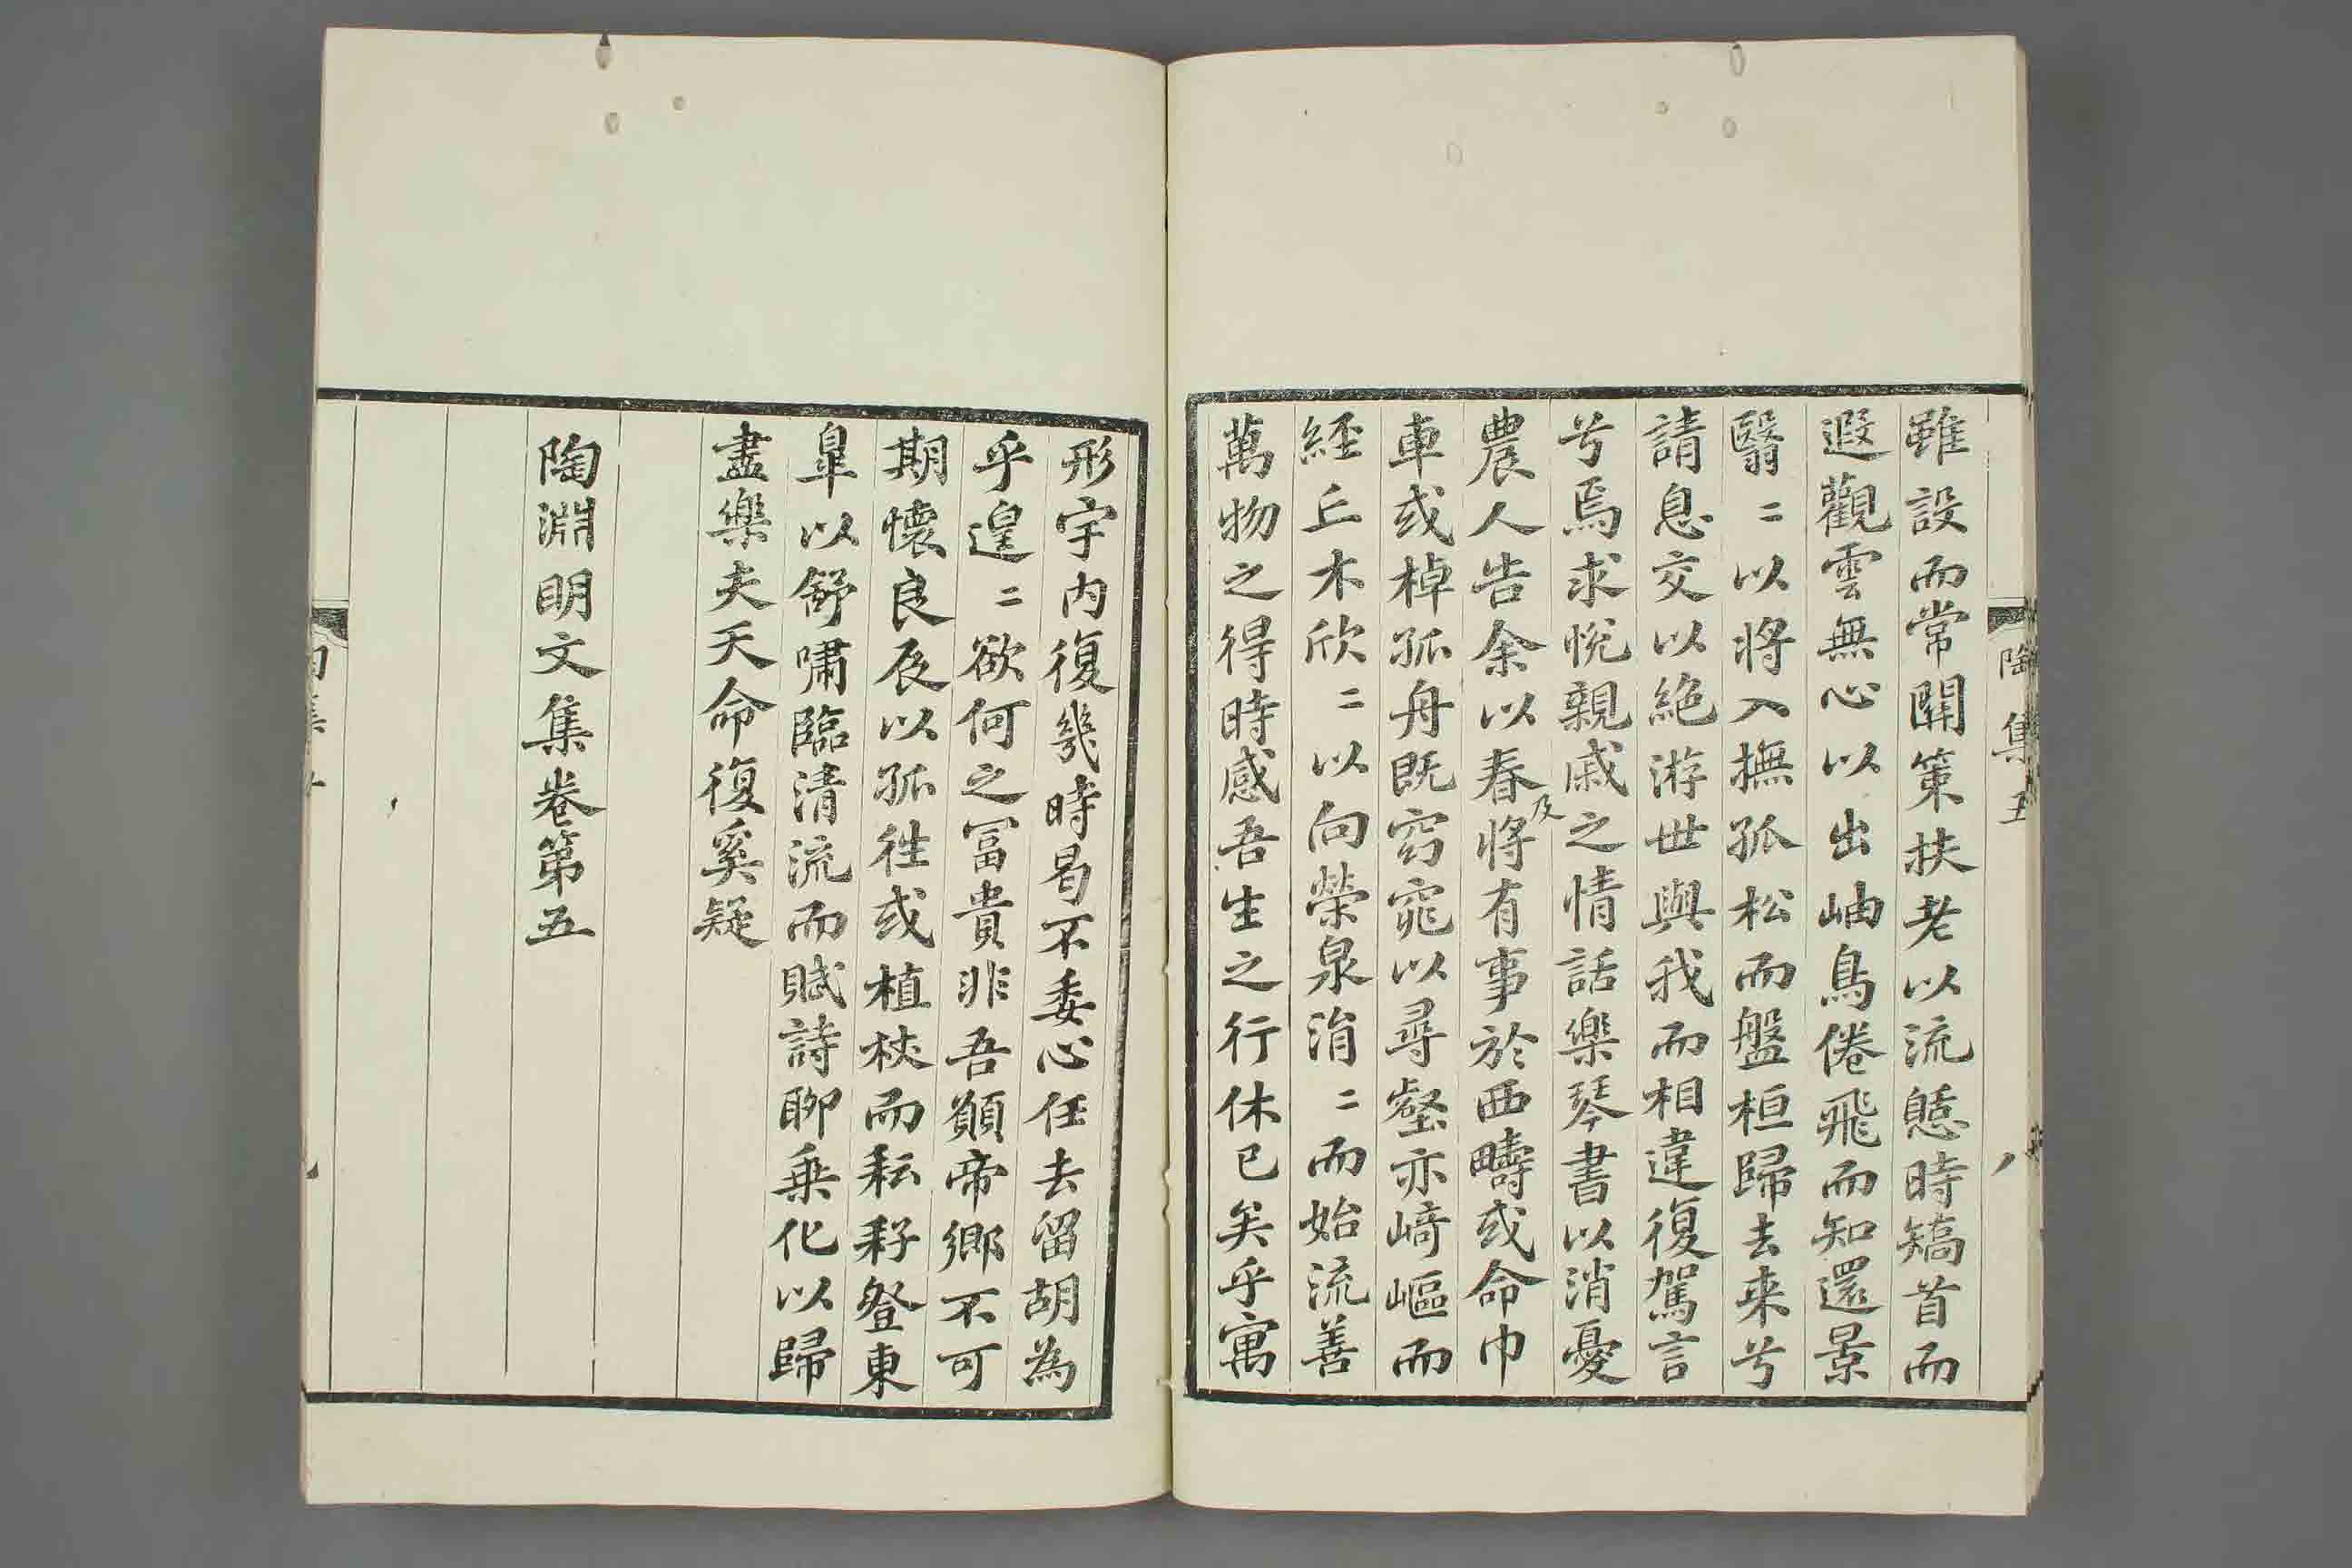 陶集五
八
雖設而常關策扶老以流憩時矯首而
遐觀雲無心以出岫鳥倦飛而知還景
翳〻以將入撫孤松而盤桓歸去来兮
請息交以絶游世與我而相違復駕言
兮焉求悅親戚之情話樂琴書以消憂
農人告余以春及將有事於西疇或命巾
車或棹孤舟既窈窕以尋壑亦崎嶇而
經丘木欣〻以向榮泉涓〻而始流善
萬物之得時感吾生之行休已矣乎寓
形宇内復幾時曷不委心任去留胡為
乎遑〻欲何之冨貴非吾願帝鄉不可
期懷良辰以孤往或植杖而耘耔登東
皐以舒嘯臨清流而賦詩聊乗化以歸
盡樂夫天命復奚疑
陶淵明文集卷第五